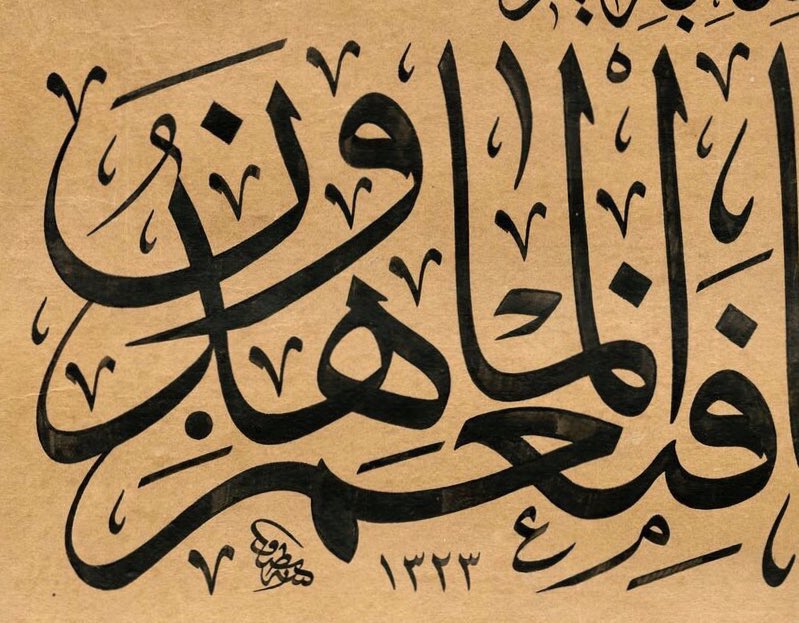 فَنِعْمَ الْمَاهِدُونَ
١٣٢٣